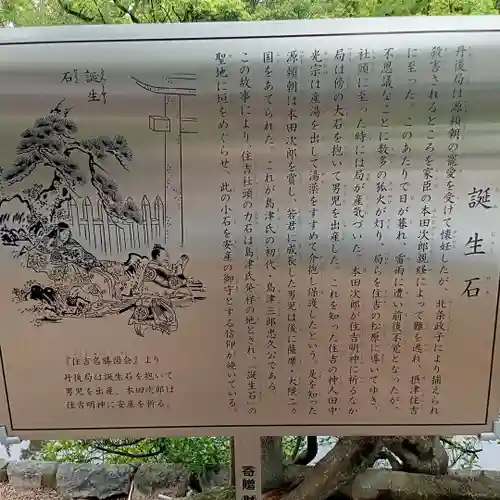 誕生石
たんじょうせき
丹後局は源頼朝の寵愛を受けて懐妊したが、北条政子により捕えられ
殺害されるところを家臣の本田次郎親経によって難を逃れ、摂津住吉
に至った。このあたりで日が暮れ、雷雨に遭い前後不覚となったが、
不思議なことに数多の狐火が灯り、局らを住吉の松原に導いてゆき、
社頭に至った時には局が産気づいた。本田次郎が住吉明神に祈るなか
局は傍の大石を抱いて男児を出産した。これを知った住吉の神人田中
光宗は産湯を出して湯薬をすすめて介抱し保護したという。是を知った
源頼朝は本田次郎を賞し、若君に成長した男児は後に薩摩・大隅二ヶ
国をあてられた。これが島津氏の初代・島津三郎忠久公である。
この故事により、住吉社頭の力石は島津氏発祥の地とされ、「誕生石」の
聖地に垣をめぐらせ、此の小石を安産の御守とする信仰が続いている。
誕生石
『住吉名勝図会』より
丹後局は誕生石を抱いて
男児を出産、本田次郎は
住吉明神に安産を祈る。
寄贈